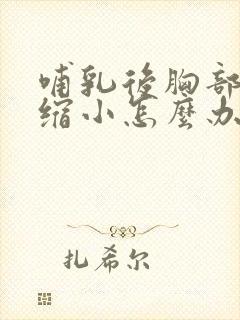 哺乳後胸部
缩小怎麼办
扎希尔